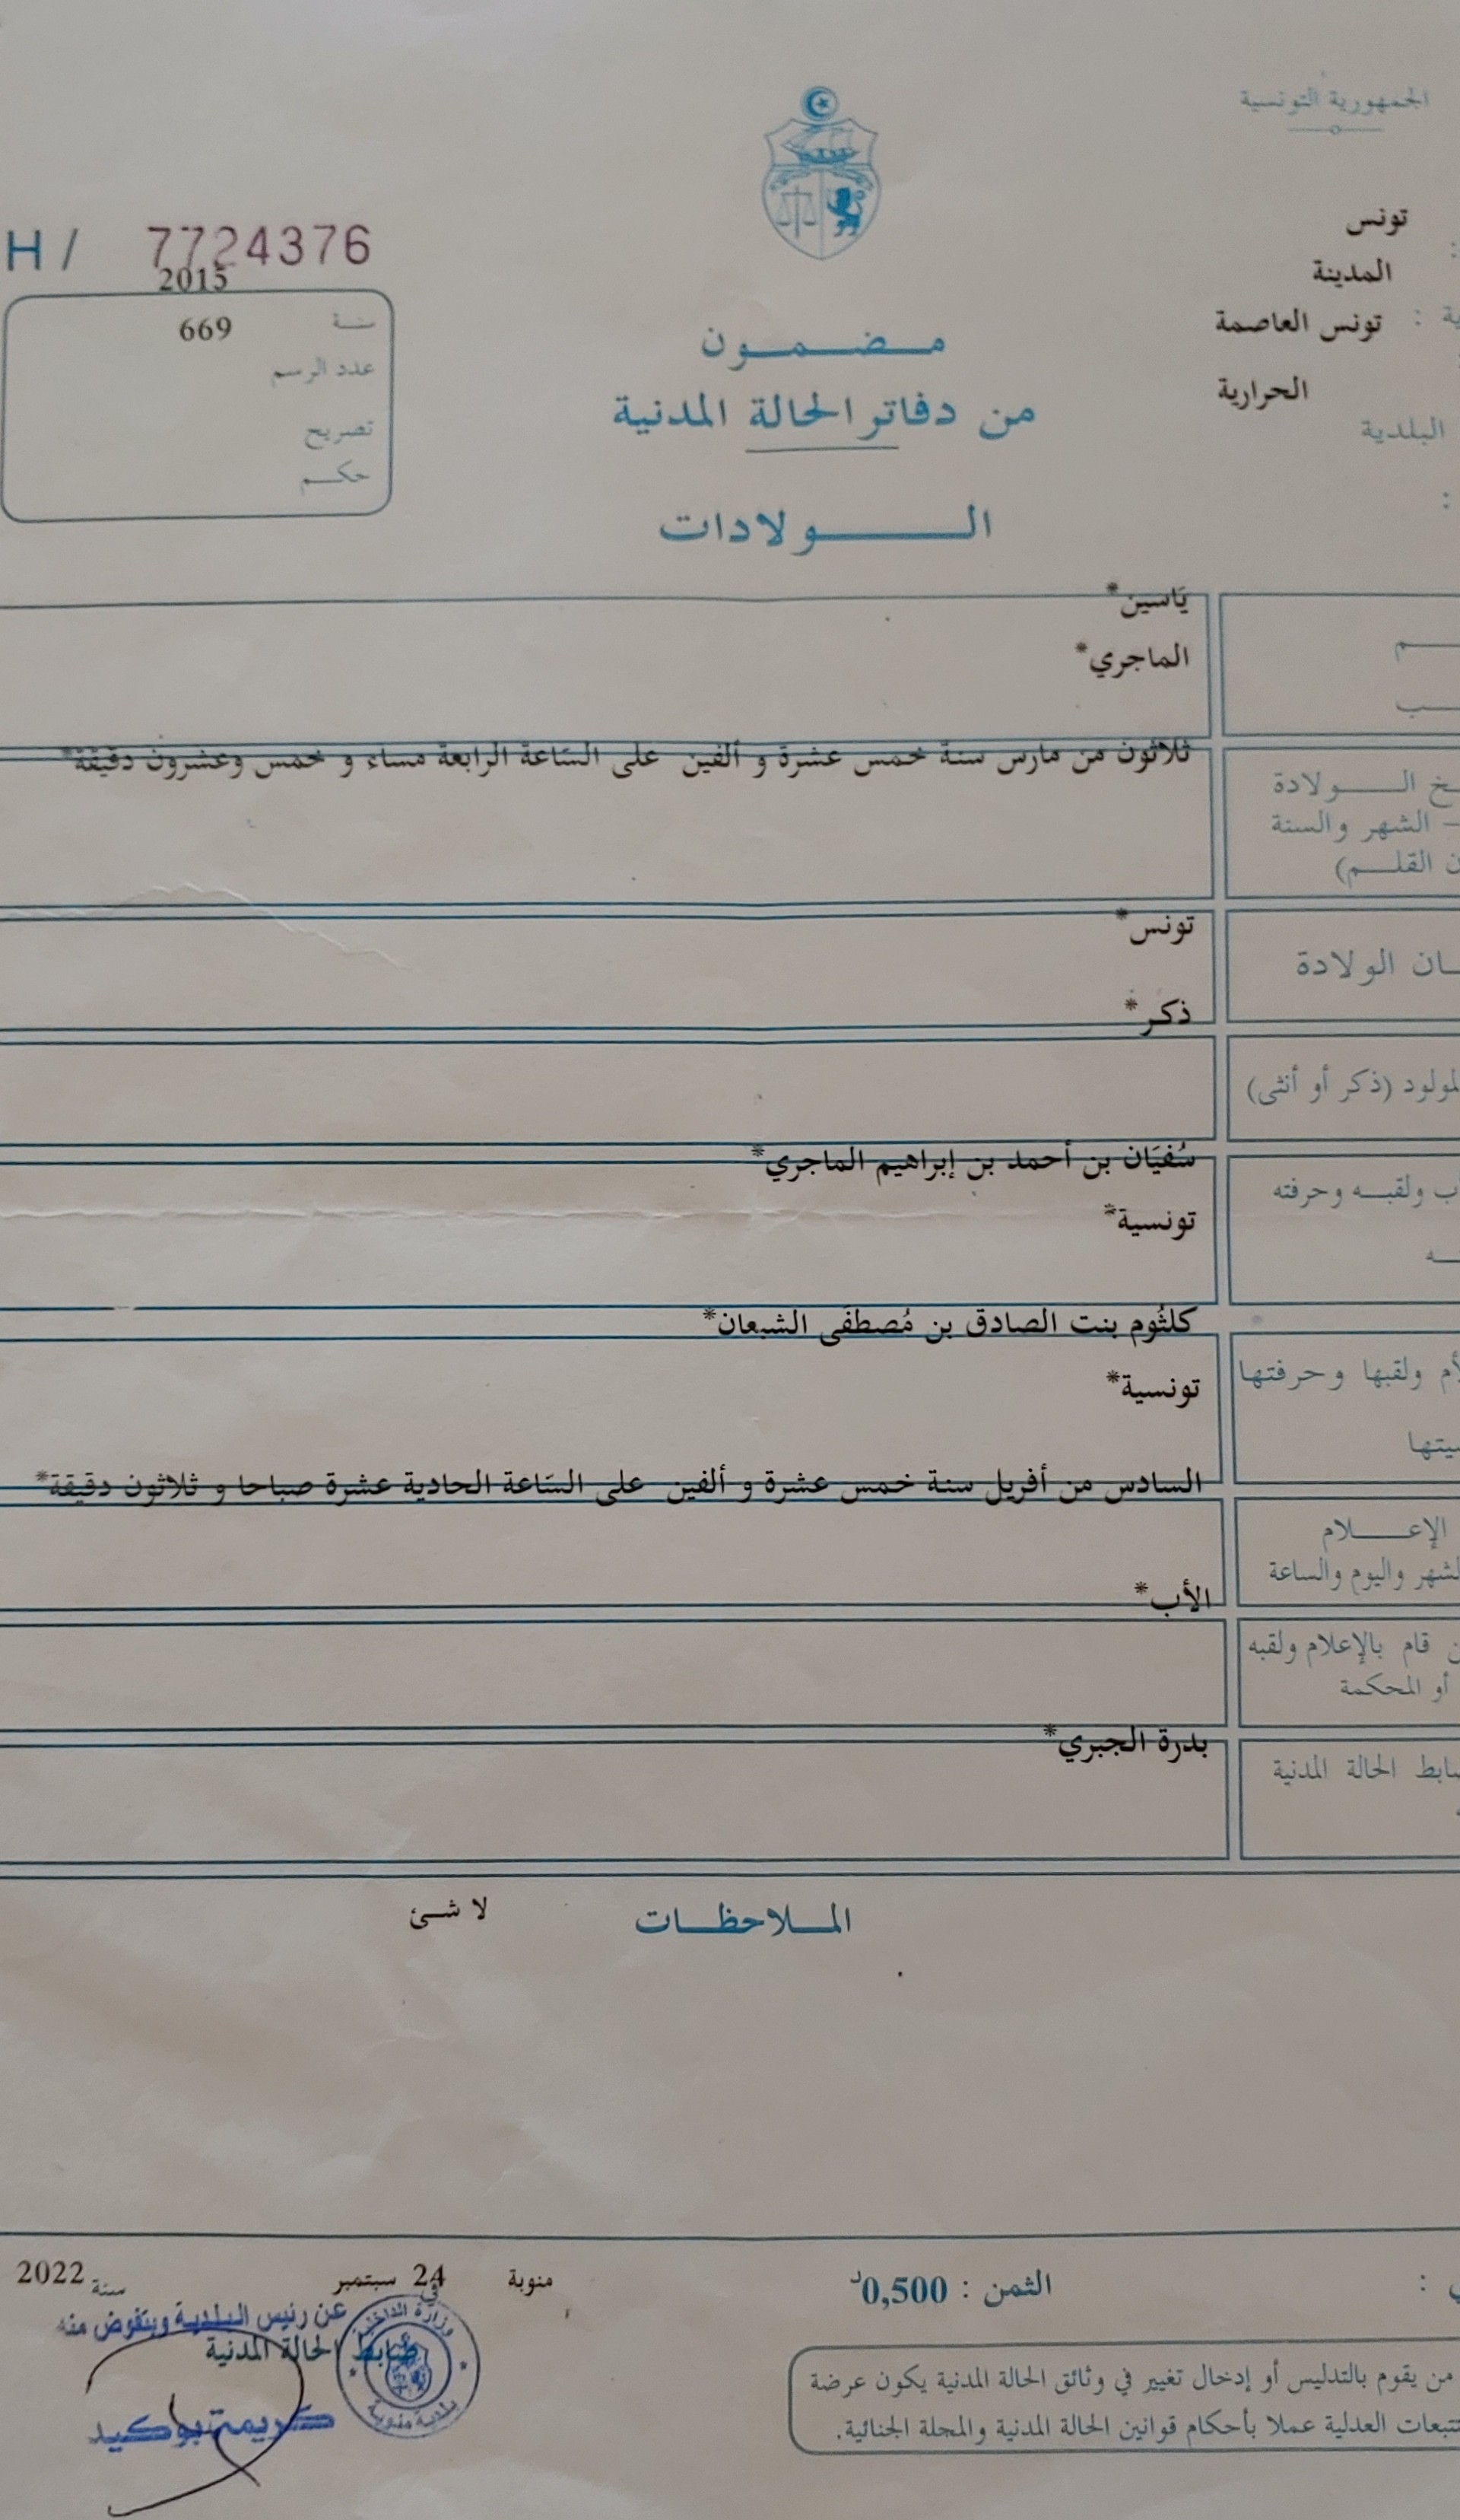 الجمهورية التونسية
تونس
المدينة
تونس العاصمة
الحرارية
البلدية
H / 7724376
2015
سنة 669
عدد الرسم
تصريح
حكم
مضمون
من دفاتر الحالة المدنية
الولادات
يَاسين*
الماجري*
ثلاثون من مارس سنة خمس عشرة و ألفين على السَاعة الرابعة مساء و خمس وعشرون دقيقة*
الولادة
الشهر والسنة
القلم)
تونس*
الولادة
ذكر*
(ذكر أو أنثى)
سُفيَان بن أحمد بن إبراهيم الماجري*
ولقبه وحرفته
تونسية*
كلثُوم بنت الصادق بن مُصطفَى الشبعان*
ولقبها وحرفتها
تونسية*
السادس من أفريل سنة خمس عشرة و ألفين على السَاعة الحادية عشرة صباحا و ثلاثون دقيقة*
الإعلام
واليوم والساعة
الأب*
قام بالإعلام ولقبه
أو المحكمة
بدرة الجبري*
الحالة المدنية
الملاحظات لا شئ
الثمن : 0,500د
منوبة في 24 سبتمبر سنة 2022
عن رئيس البلدية وبتفوض منه
ضابط الحالة المدنية
كريمة بوكيد
وزارة الداخلية
بلدية منوبة
من يقوم بالتدليس أو إدخال تغيير في وثائق الحالة المدنية يكون عرضة
العدلية عملا بأحكام قوانين الحالة المدنية والمجلة الجنائية.